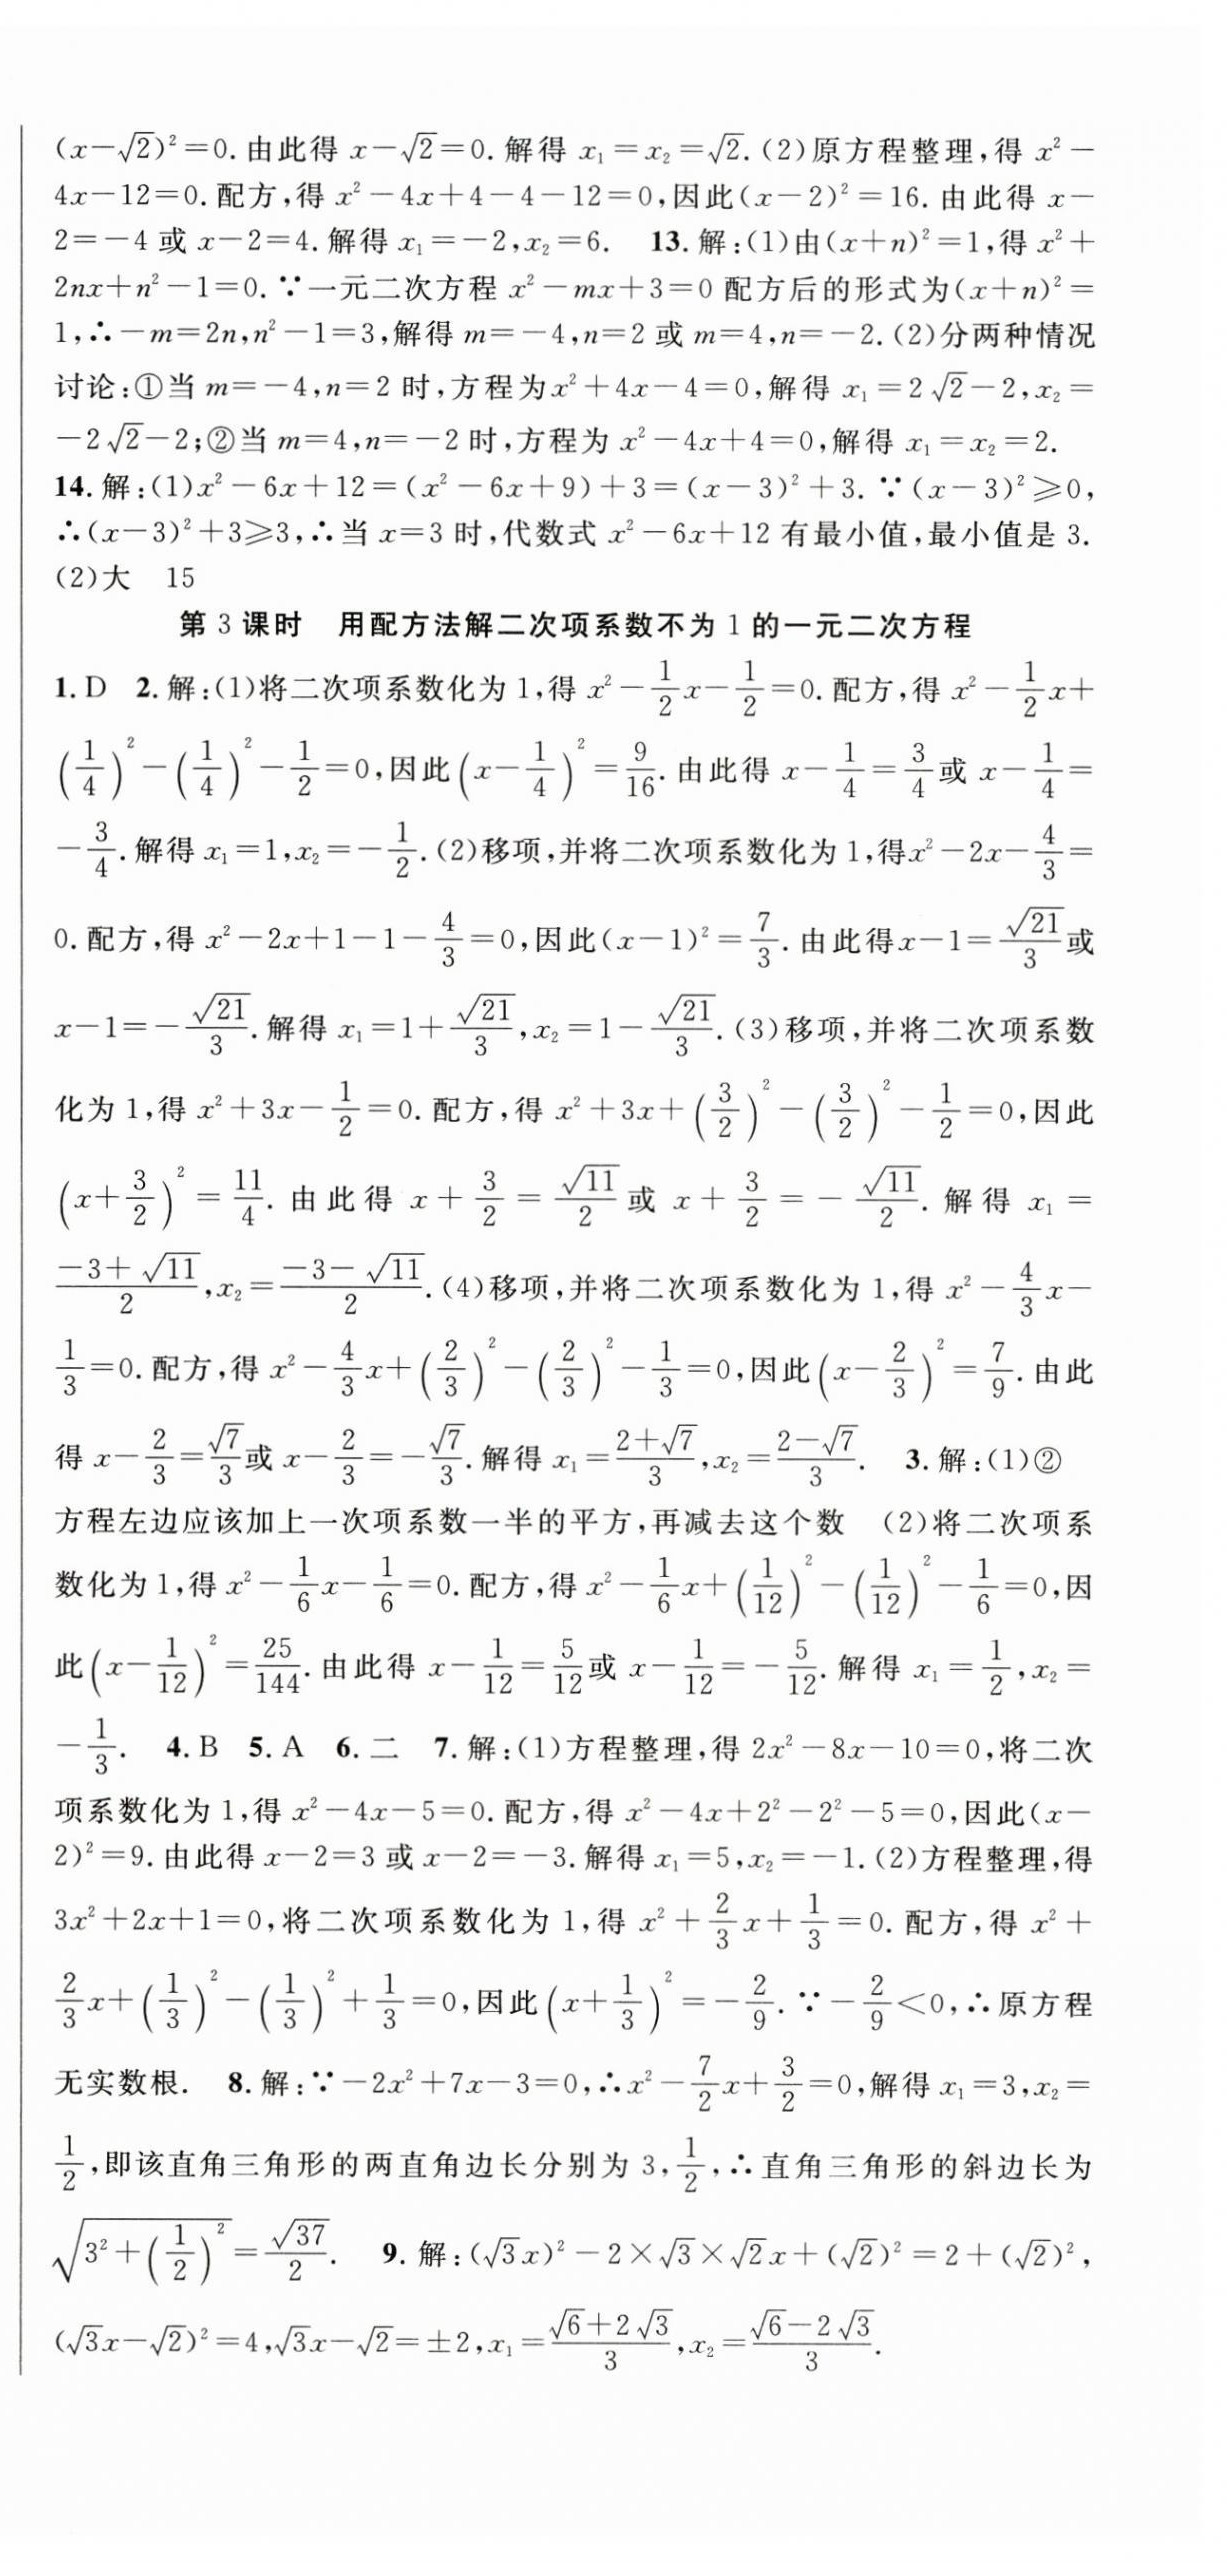 (x-√2)²=0.由此得 x-√2=0.解得 x₁=x₂=√2.(2)原方程整理,得 x²-
4x-12=0.配方,得 x²-4x+4-4-12=0,因此(x-2)²=16.由此得 x-
2=-4 或 x-2=4.解得 x₁=-2,x₂=6. 13.解:(1)由(x+n)²=1,得 x²+
2nx+n²-1=0.∵一元二次方程 x²-mx+3=0 配方后的形式为(x+n)²=
1,∴-m=2n,n²-1=3,解得 m=-4,n=2 或 m=4,n=-2.(2)分两种情况
讨论:①当 m=-4,n=2 时,方程为x²+4x-4=0,解得 x₁=2√2-2,x₂=
-2√2-2;②当 m=4,n=-2 时,方程为 x²-4x+4=0,解得 x₁=x₂=2.
14.解:(1)x²-6x+12=(x²-6x+9)+3=(x-3)²+3.∵(x-3)²≥0,
∴(x-3)²+3≥3,∴当 x=3 时,代数式 x²-6x+12 有最小值,最小值是 3.
(2)大 15
第 3 课时 用配方法解二次项系数不为 1 的一元二次方程
1.D 2.解:(1)将二次项系数化为 1,得 x²-1/2x-1/2=0.配方,得 x²-1/2x+
(1/4)²-(1/4)²-1/2=0,因此(x-1/4)²=9/16.由此得 x-1/4=3/4或 x-1/4=
-3/4.解得 x₁=1,x₂=-1/2.(2)移项,并将二次项系数化为 1,得x²-2x-4/3=
0.配方,得 x²-2x+1-1-4/3=0,因此(x-1)²=7/3.由此得x-1=√21/3或
x-1=-√21/3.解得 x₁=1+√21/3,x₂=1-√21/3.(3)移项,并将二次项系数
化为 1,得 x²+3x-1/2=0.配方,得 x²+3x+(3/2)²-(3/2)²-1/2=0,因此
(x+3/2)²=11/4.由此得 x+3/2=√11/2或 x+3/2=-√11/2.解得 x₁=
(-3+√11)/2,x₂=(-3-√11)/2.(4)移项,并将二次项系数化为 1,得 x²-4/3x-
1/3=0.配方,得 x²-4/3x+(2/3)²-(2/3)²-1/3=0,因此(x-2/3)²=7/9.由此
得 x-2/3=√7/3或 x-2/3=-√7/3.解得 x₁=(2+√7)/3,x₂=(2-√7)/3. 3.解:(1)②
方程左边应该加上一次项系数一半的平方,再减去这个数 (2)将二次项系
数化为 1,得 x²-1/6x-1/6=0.配方,得 x²-1/6x+(1/12)²-(1/12)²-1/6=0,因
此(x-1/12)²=25/144.由此得 x-1/12=5/12或 x-1/12=-5/12.解得 x₁=1/2,x₂=
-1/3. 4.B 5.A 6.二 7.解:(1)方程整理,得 2x²-8x-10=0,将二次
项系数化为 1,得 x²-4x-5=0.配方,得 x²-4x+2²-2²-5=0,因此(x-
2)²=9.由此得 x-2=3 或 x-2=-3.解得 x₁=5,x₂=-1.(2)方程整理,得
3x²+2x+1=0,将二次项系数化为 1,得 x²+2/3x+1/3=0.配方,得 x²+
2/3x+(1/3)²-(1/3)²+1/3=0,因此(x+1/3)²=-2/9.∵-2/9<0,∴原方程
无实数根. 8.解:∵-2x²+7x-3=0,∴x²-7/2x+3/2=0,解得 x₁=3,x₂=
1/2,即该直角三角形的两直角边长分别为 3,1/2,∴直角三角形的斜边长为
√(3²+(1/2)²)=√37/2. 9.解:(√3x)²-2×√3×√2x+(√2)²=2+(√2)²,
(√3x-√2)²=4,√3x-√2=±2,x₁=(√6+2√3)/3,x₂=(√6-2√3)/3.